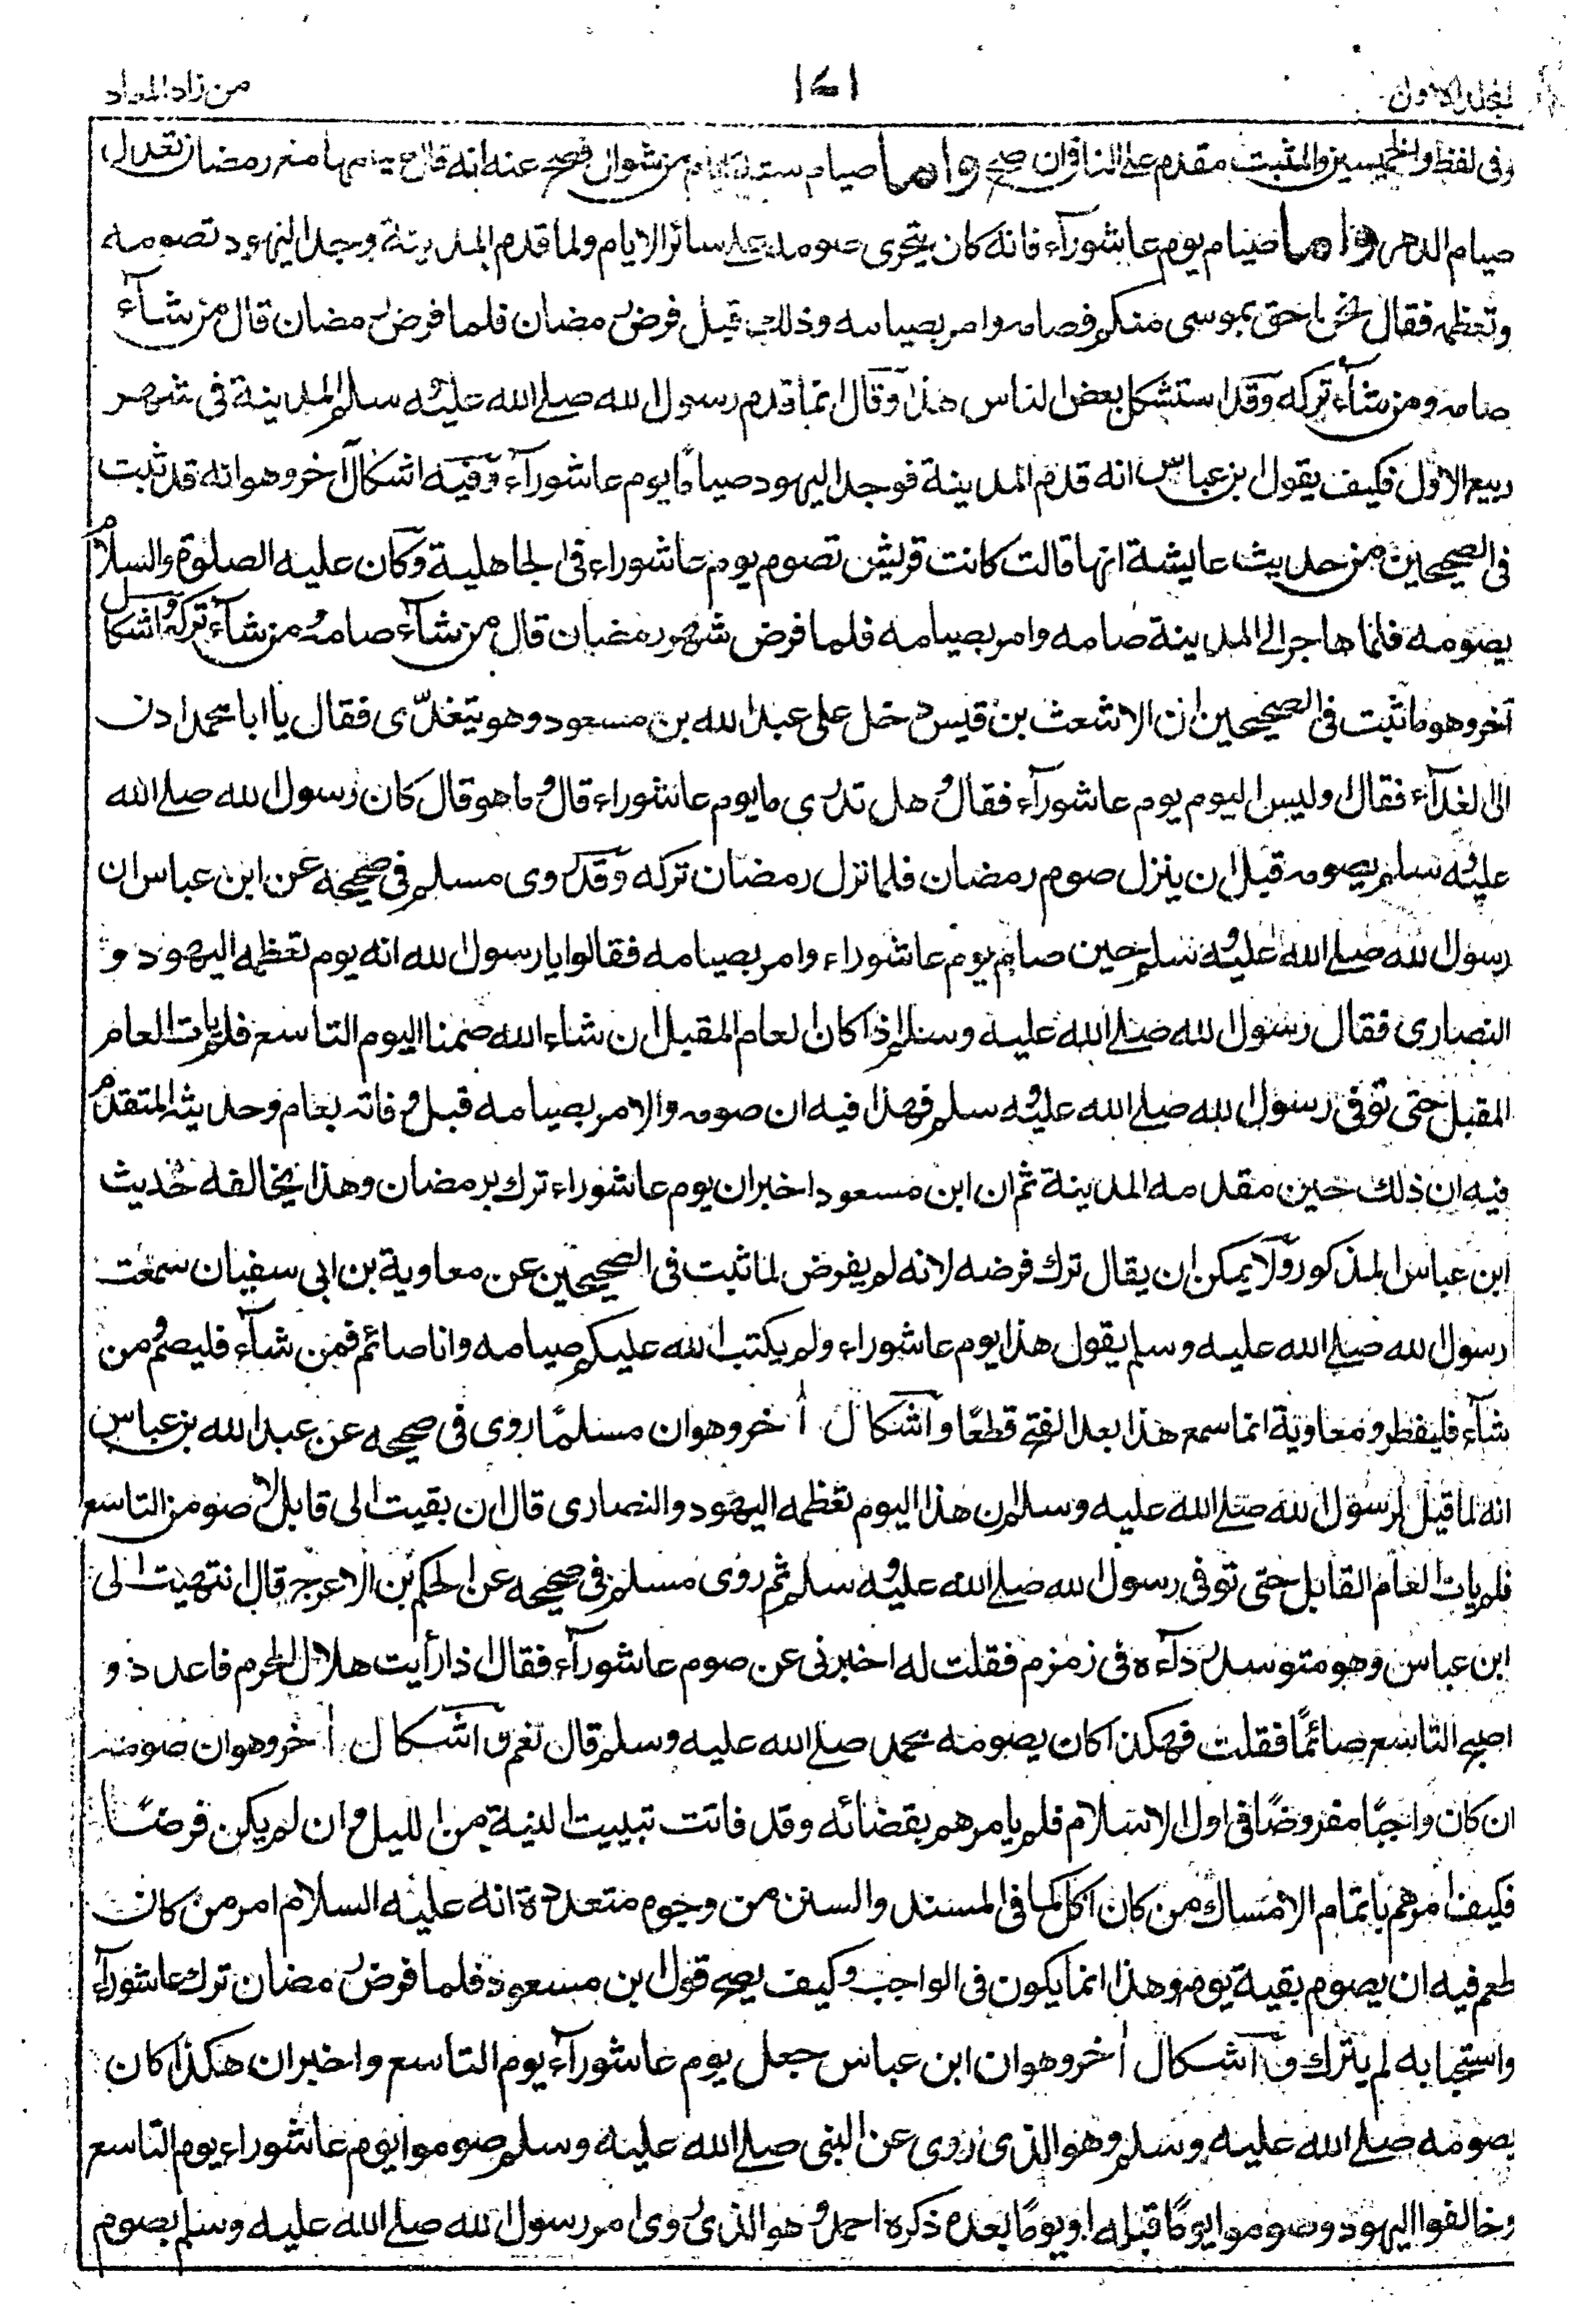 المجلد الاول
١٤١
من زاد المعاد
وفى لفظ والخميسين والمثبت مقدم على النافى ان صح واما صيام ستة ايام من شوال فصح عنه انه قال صيامها مع رمضان تعدل
صيام الدهر واما صيام يوم عاشورآء فانه كان يتحرى صومه على سائر الايام ولما قدم المدينة وجد اليهود تصومه
وتعظمه فقال نحن احق بموسى منكم فصامه وامر بصيامه وذلك قبل فرض رمضان فلما فرض رمضان قال من شآء
صامه ومن شآء تركه وقد استشكل بعض الناس هذا وقال انما قدم رسول الله صلے الله عليه وسلم المدينة فى شهر
ربيع الاول فكيف يقول ابن عباس انه قدم المدينة فوجد اليهود صياما يوم عاشورآء وفيه اشكال آخر وهو انه قد ثبت
فى الصحيحين من حديث عايشة انها قالت كانت قريش تصوم يوم عاشوراء فى الجاهلية وكان عليه الصلوة والسلام
يصومه فلما هاجر الے المدينة صامه وامر بصيامه فلما فرض شهر رمضان قال من شآء صامه ومن شآء تركه واشكال
آخر وهو ما ثبت فى الصحيحين ان الاشعث بن قيس دخل على عبد الله بن مسعود وهو يتغدّى فقال يا ابا محمد ادن
الى الغدآء فقال اوليس اليوم يوم عاشورآء فقال وهل تدرى ما يوم عاشوراء قال وما هو قال كان رسول الله صلے الله
عليه وسلم يصومه قبل ان ينزل صوم رمضان فلما نزل رمضان تركه وقد روى مسلم فى صحيحه عن ابن عباس ان
رسول الله صلے الله عليه وسلم حين صام يوم عاشوراء وامر بصيامه فقالوا يا رسول الله انه يوم تعظمه اليهود و
النصارى فقال رسول الله صلے الله عليه وسلم اذا كان العام المقبل ان شاء الله صمنا اليوم التاسع فلم يات العام
المقبل حتى توفى رسول الله صلے الله عليه وسلم فهذا فيه ان صومه والامر بصيامه قبل وفاته بعام وحديثه المتقدم
فيه ان ذلك حين مقدمه المدينة ثم ان ابن مسعود اخبر ان يوم عاشوراء ترك برمضان وهذا يخالفه حديث
ابن عباس المذكور ولا يمكن ان يقال ترك فرضه لانه لم يفرض لما ثبت فى الصحيحين عن معاوية بن ابى سفيان سمعت
رسول الله صلے الله عليه وسلم يقول هذا يوم عاشوراء ولم يكتب الله عليكم صيامه وانا صائم فمن شآء فليصم ومن
شآء فليفطر ومعاوية انما سمع هذا بعد الفتح قطعًا واشكال اخر وهو ان مسلمًا روى فى صحيحه عن عبد الله بن عباس
انه لما قيل لرسول الله صلے الله عليه وسلم ان هذا اليوم تعظمه اليهود والنصارى قال ان بقيت الى قابل لاصومن التاسع
فلم يات العام القابل حتى توفى رسول الله صلے الله عليه وسلم ثم روى مسلم فى صحيحه عن الحكم بن الاعرج قال انتهيت الى
ابن عباس وهو متوسد ردآءه فى زمزم فقلت له اخبرنى عن صوم عاشورآء فقال اذا رأيت هلال المحرم فاعدد و
اصبح التاسع صائمًا فقلت فهكذا كان يصومه محمد صلے الله عليه وسلم قال نعم واشكال اخر وهو ان صومه
ان كان واجبًا مفروضًا فى اول الاسلام فلم يامرهم بقضائه وقد فاتت تبييت النية من الليل وان لم يكن فرضًا
فكيف امرهم باتمام الامساك من كان اكل كما فى المسند والسنن من وجوه متعددة انه عليه السلام امر من كان
طعم فيه ان يصوم بقية يومه وهذا انما يكون فى الواجب وكيف يصح قول ابن مسعود فلما فرض رمضان ترك عاشورآء
واستحبابه لم يترك واشكال اخر وهو ان ابن عباس جعل يوم عاشورآء يوم التاسع واخبر ان هكذا كان
يصومه صلے الله عليه وسلم وهو الذى روى عن النبى صلے الله عليه وسلم صوموا يوم عاشوراء يوم التاسع
وخالفوا اليهود وصوموا يومًا قبله او يومًا بعده ذكره احمد وهو الذى روى امر رسول الله صلے الله عليه وسلم بصوم